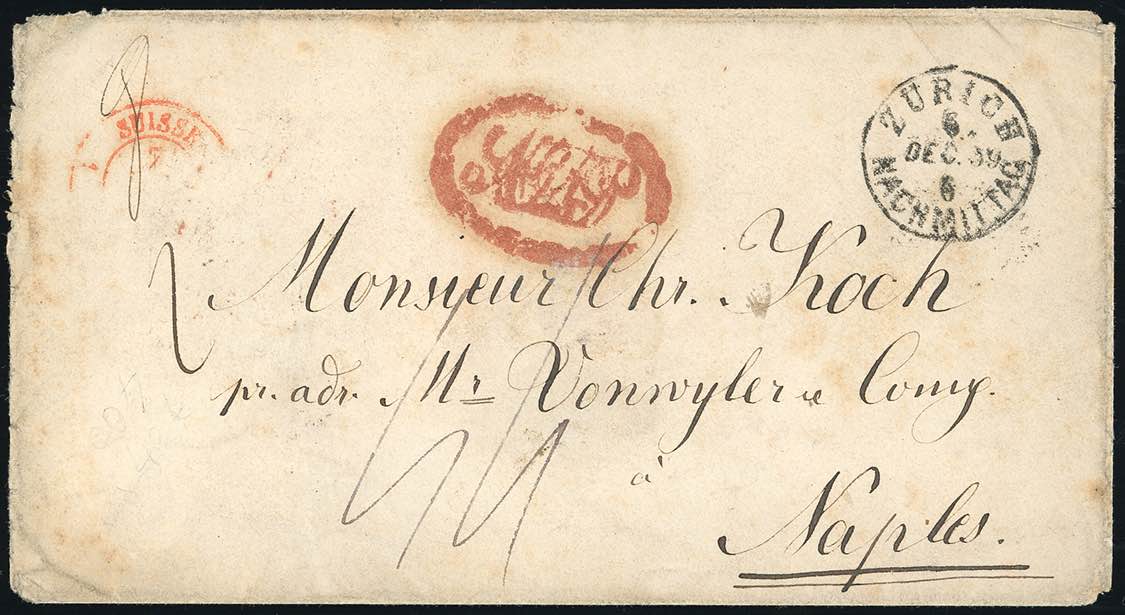 SUISSE
7
ZURICH
6
DEC. 59
6
NACHMITTAG
Monsieur Chr. Koch
pr. adr. Mr Vonwyler & Comp.
à
Naples.